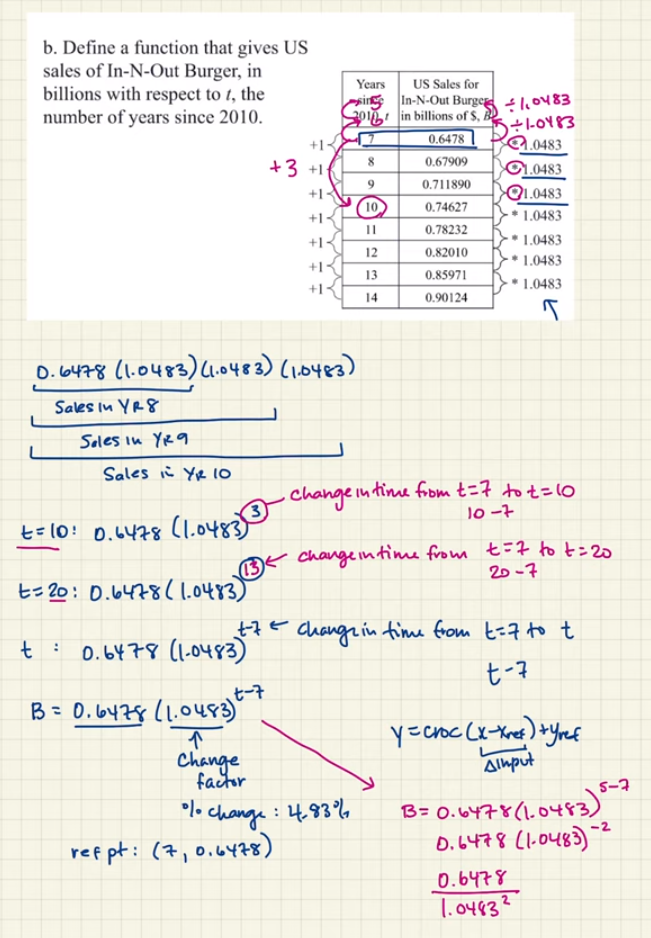 b. Define a function that gives US
sales of In-N-Out Burger, in
billions with respect to t, the
number of years since 2010.
Years since 2010, t
US Sales for In-N-Out Burger in billions of $, B
5
6
÷1.0483
÷1.0483
7 0.6478
8 0.67909
9 0.711890
10 0.74627
11 0.78232
12 0.82010
13 0.85971
14 0.90124
+3
+1
+1
+1
+1
+1
+1
+1
* 1.0483
* 1.0483
* 1.0483
* 1.0483
* 1.0483
* 1.0483
* 1.0483
0.6478 (1.0483)(1.0483)(1.0483)
Sales in YR 8
Sales in YR 9
Sales in YR 10
t=10: 0.6478 (1.0483)^3 change in time from t=7 to t=10
10-7
t=20: 0.6478(1.0483)^13 change in time from t=7 to t=20
20-7
t : 0.6478 (1.0483)^t-7 change in time from t=7 to t
t-7
B = 0.6478 (1.0483)^t-7
Change
factor
% change: 4.83%
ref pt: (7, 0.6478)
y = croc (x-xref)+yref
Δinput
B = 0.6478(1.0483)^5-7
0.6478 (1.0483)^-2
0.6478
1.0483^2